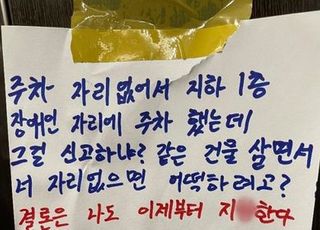 주차 자리없어서 지하 1층
장애인 자리에 주차 했는데
그걸 신고하냐? 같은 건물 살면서
너 자리없으면 어떡하려고?
결론은 나도 이제부터 지 한다